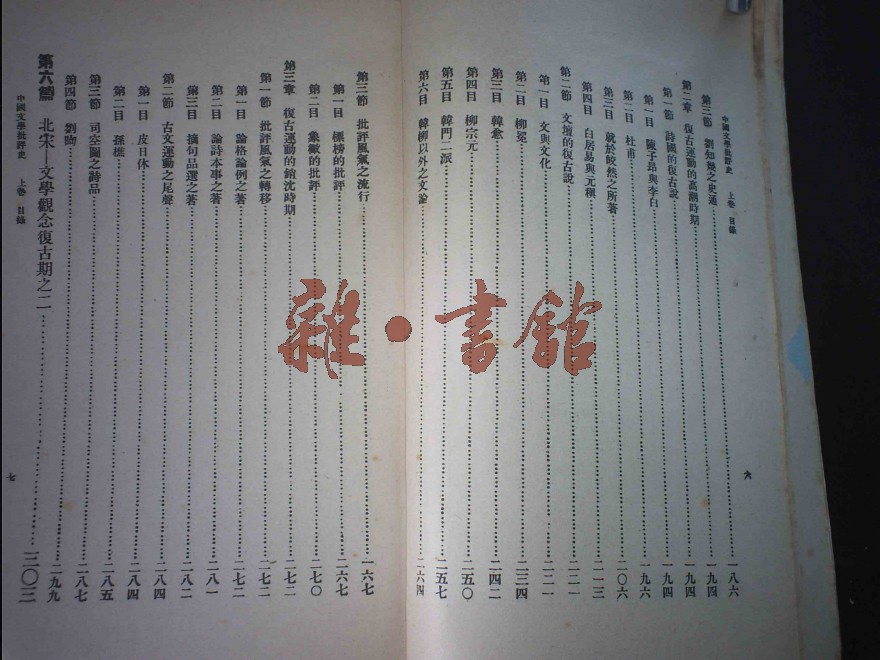 中國文學批評史 上卷 目錄
第三節 劉知幾之史通……一八六
第二章 復古運動的高潮時期……一九四
第一節 詩國的復古說……一九四
第一目 陳子昂與李白……一九四
第二目 杜甫……一九六
第三目 就於皎然之所著……二〇六
第四目 白居易與元稹……二一三
第二節 文壇的復古說……二二一
第一目 文與文化……二二一
第二目 柳冕……二三四
第三目 韓愈……二四二
第四目 柳宗元……二五〇
第五目 韓門二派……二五七
第六目 韓柳以外之文論……二六四
六
第三節 批評風氣之流行……一六七
第一目 標榜的批評……二六七
第二目 象徵的批評……二七〇
第三章 復古運動的銷沈時期……二七二
第一節 批評風氣之轉移……二七二
第一目 論格論例之著……二七二
第二目 論詩本事之著……二八一
第三目 摘句品選之著……二八二
第二節 古文運動之尾聲……二八四
第一目 皮日休……二八四
第二目 孫樵……二八五
第三節 司空圖之詩品……二八七
第四節 劉昫……二九九
第六篇 北宋—文學觀念復古期之二……三〇三
中國文學批評史 上卷 目錄
七
雜·書館